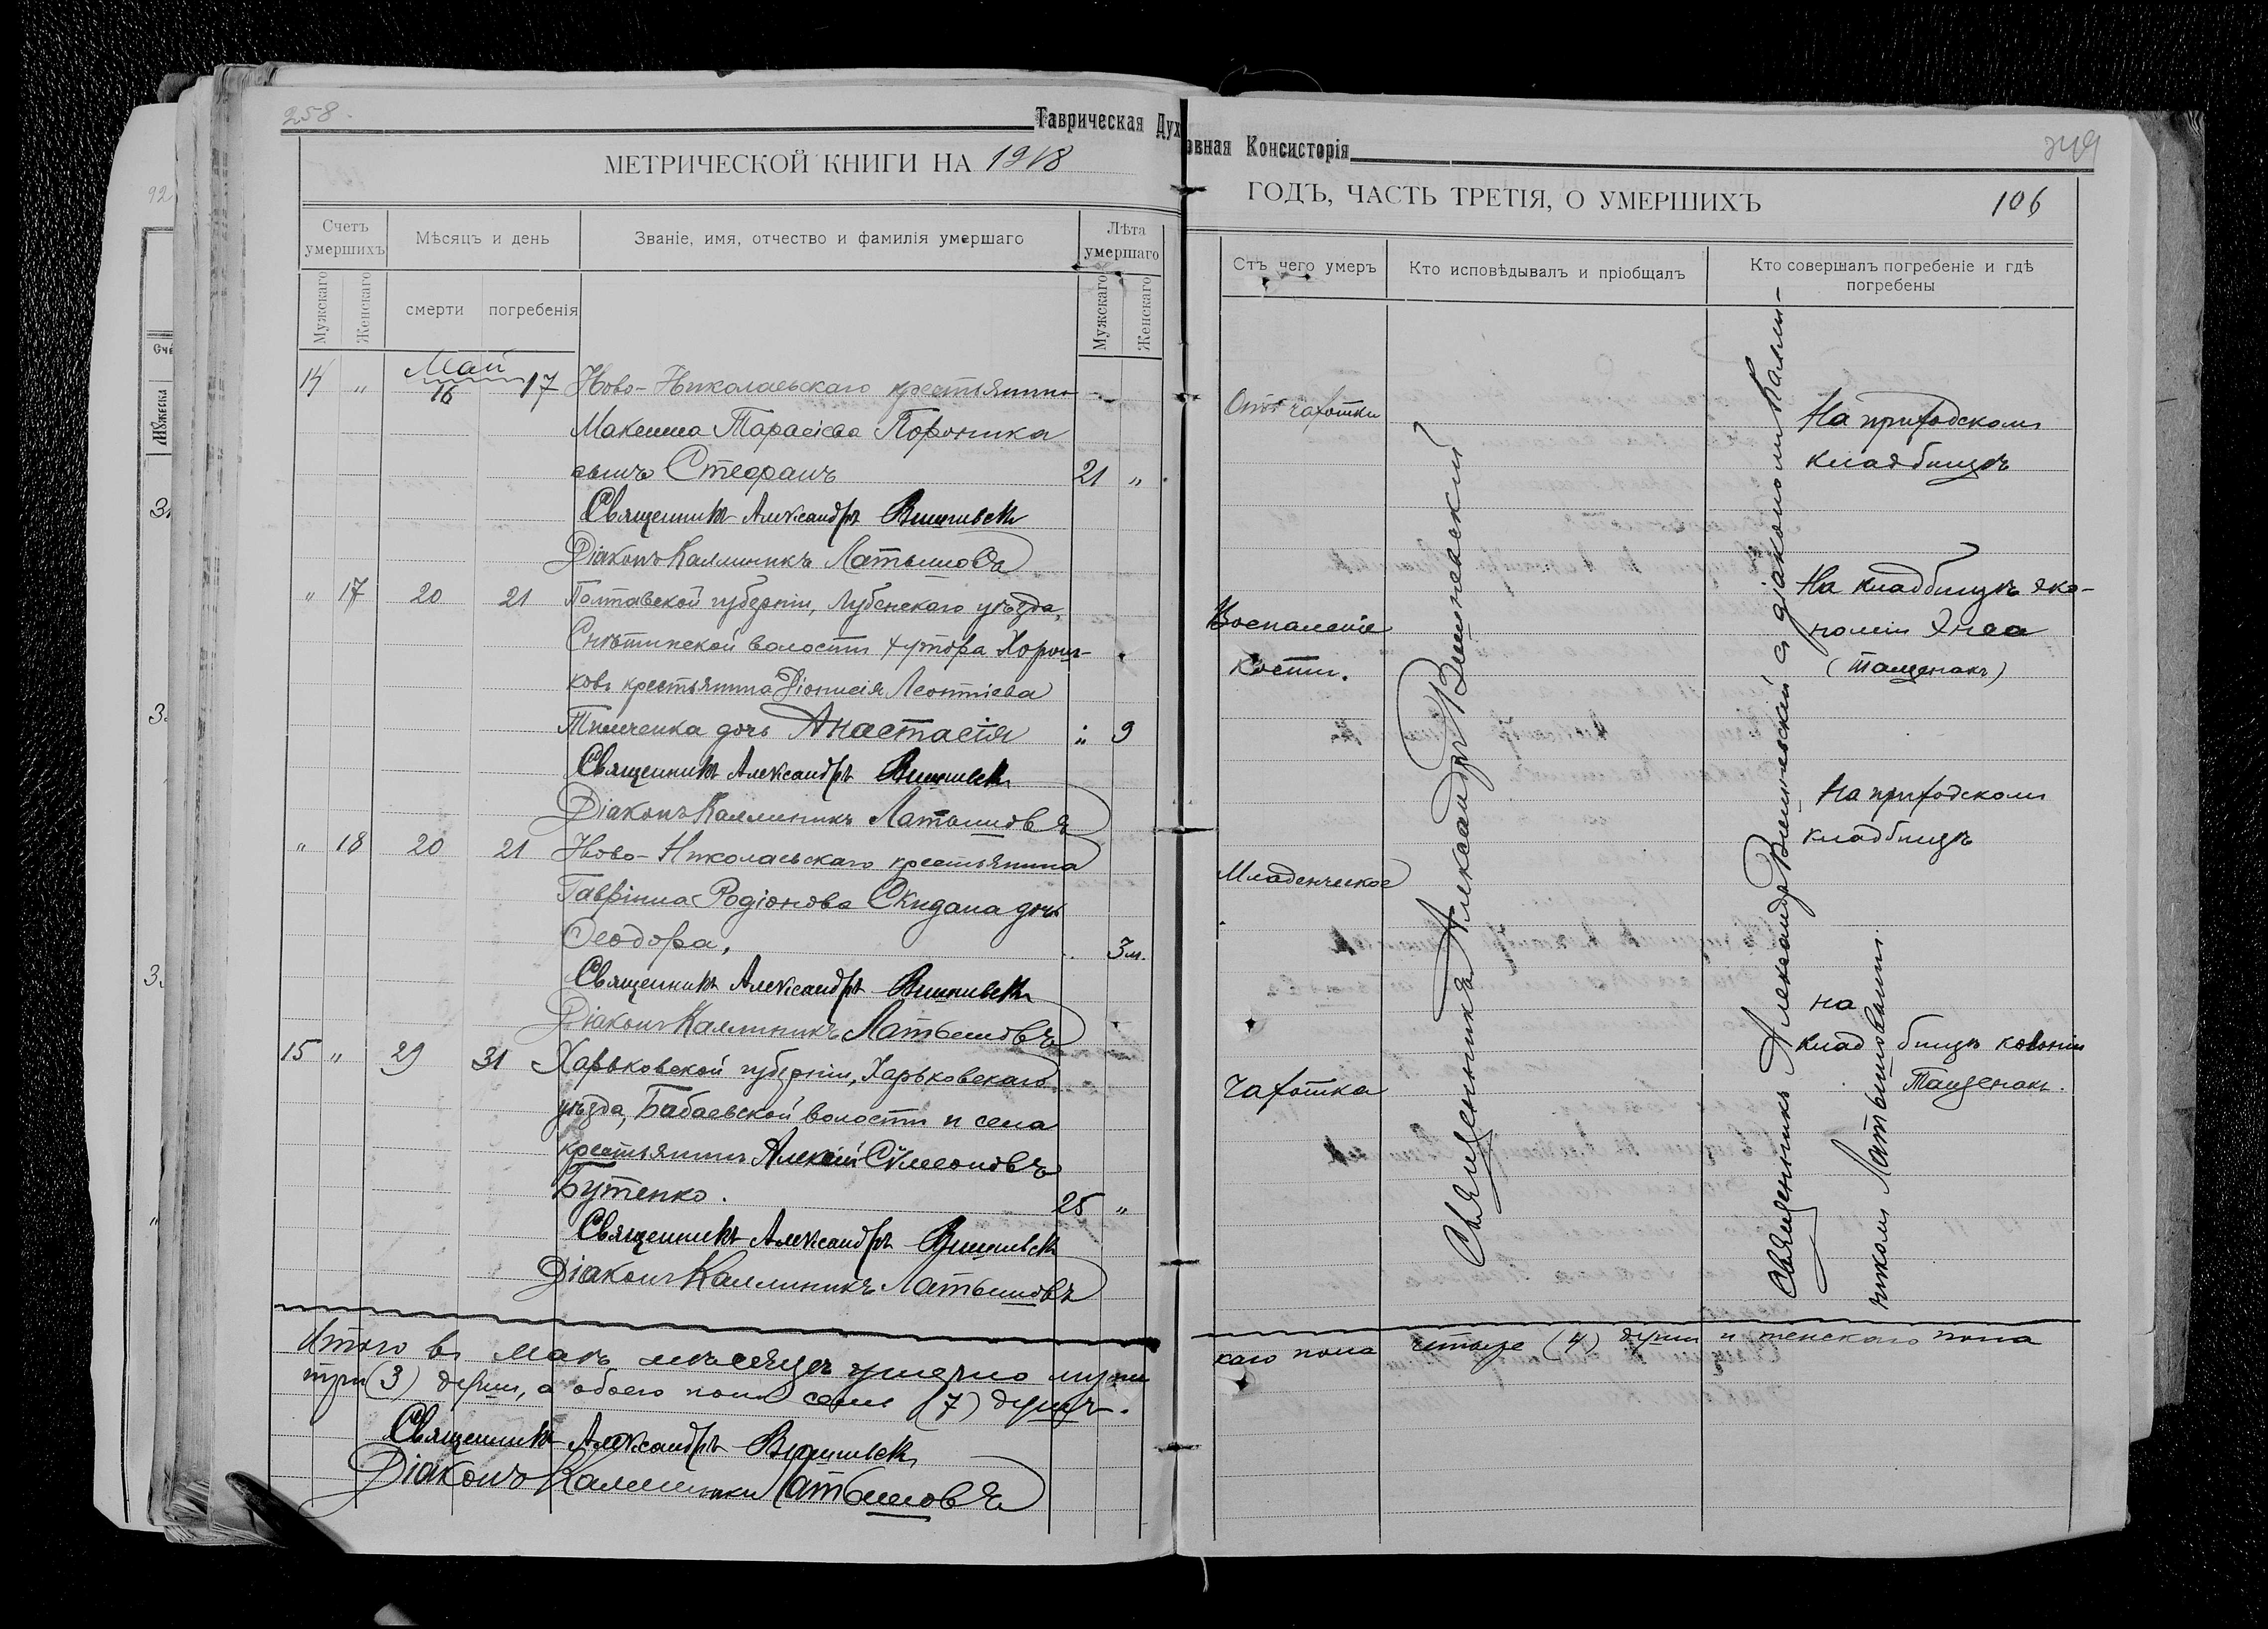 258.
Таврическая Духовная Консисторія
249
МЕТРИЧЕСКОЙ КНИГИ НА 1918 ГОДЪ, ЧАСТЬ ТРЕТІЯ, О УМЕРШИХЪ
106
Счетъ умершихъ
Мѣсяцъ и день
Званіе, имя, отчество и фамилія умершаго
Лѣта умершаго
Мужскаго
Женскаго
смерти
погребенія
Мужскаго
Женскаго
Отъ чего умеръ
Кто исповѣдывалъ и пріобщалъ
Кто совершалъ погребеніе и гдѣ
погребены
Май
14 " 16 17 Ново-Николаевскаго крестьянина
Максима Тарасіева
сынъ Стефанъ 21 "
Священникъ Александръ Вишневск
Діаконъ Каллиникъ Латышовъ
" 17 20 21 Полтавской губерніи, Лубенскаго уѣзда,
Снѣтинской волости хутора Хорош-
ковъ крестьянина Діонисія Леонтіева
Тимченка дочь Анастасія " 9
Священникъ Александръ Вишневск
Діаконъ Каллиникъ Латышовъ
" 18 20 21 Ново-Николаевскаго крестьянина
Гавріила Родіонова Скидана дочь
Ѳеодора. 3 м.
Священникъ Александръ Вишневск
Діаконъ Каллиникъ Латышовъ
15 " 29 31 Харьковской губерніи, Харьковскаго
уѣзда, Бабаевской волости и села
крестьянинъ Алексій Сѵмеоновъ
Бутенко. 25 "
Священникъ Александръ Вишневск
Діаконъ Каллиникъ Латышовъ
Отъ чахотки
Воспаленіе
кости.
Младенческое
Чахотка
Священникъ Александръ Вишневскій
Священникъ Александръ Вишневскій съ діакономъ Калли-
никомъ Латышовымъ.
На приходскомъ
кладбищѣ
На кладбищѣ эко-
номіи
(Тащенакъ)
На приходскомъ
кладбищѣ
на
кладбищѣ колоніи
Тащенакъ.
Итого въ маѣ мѣсяцѣ умерло мужс
каго пола четыре (4) души и женскаго пола
три (3) души, а обоего пола семь (7) душъ.
Священникъ Александръ Вишневск
Діаконъ Каллиникъ Латышовъ